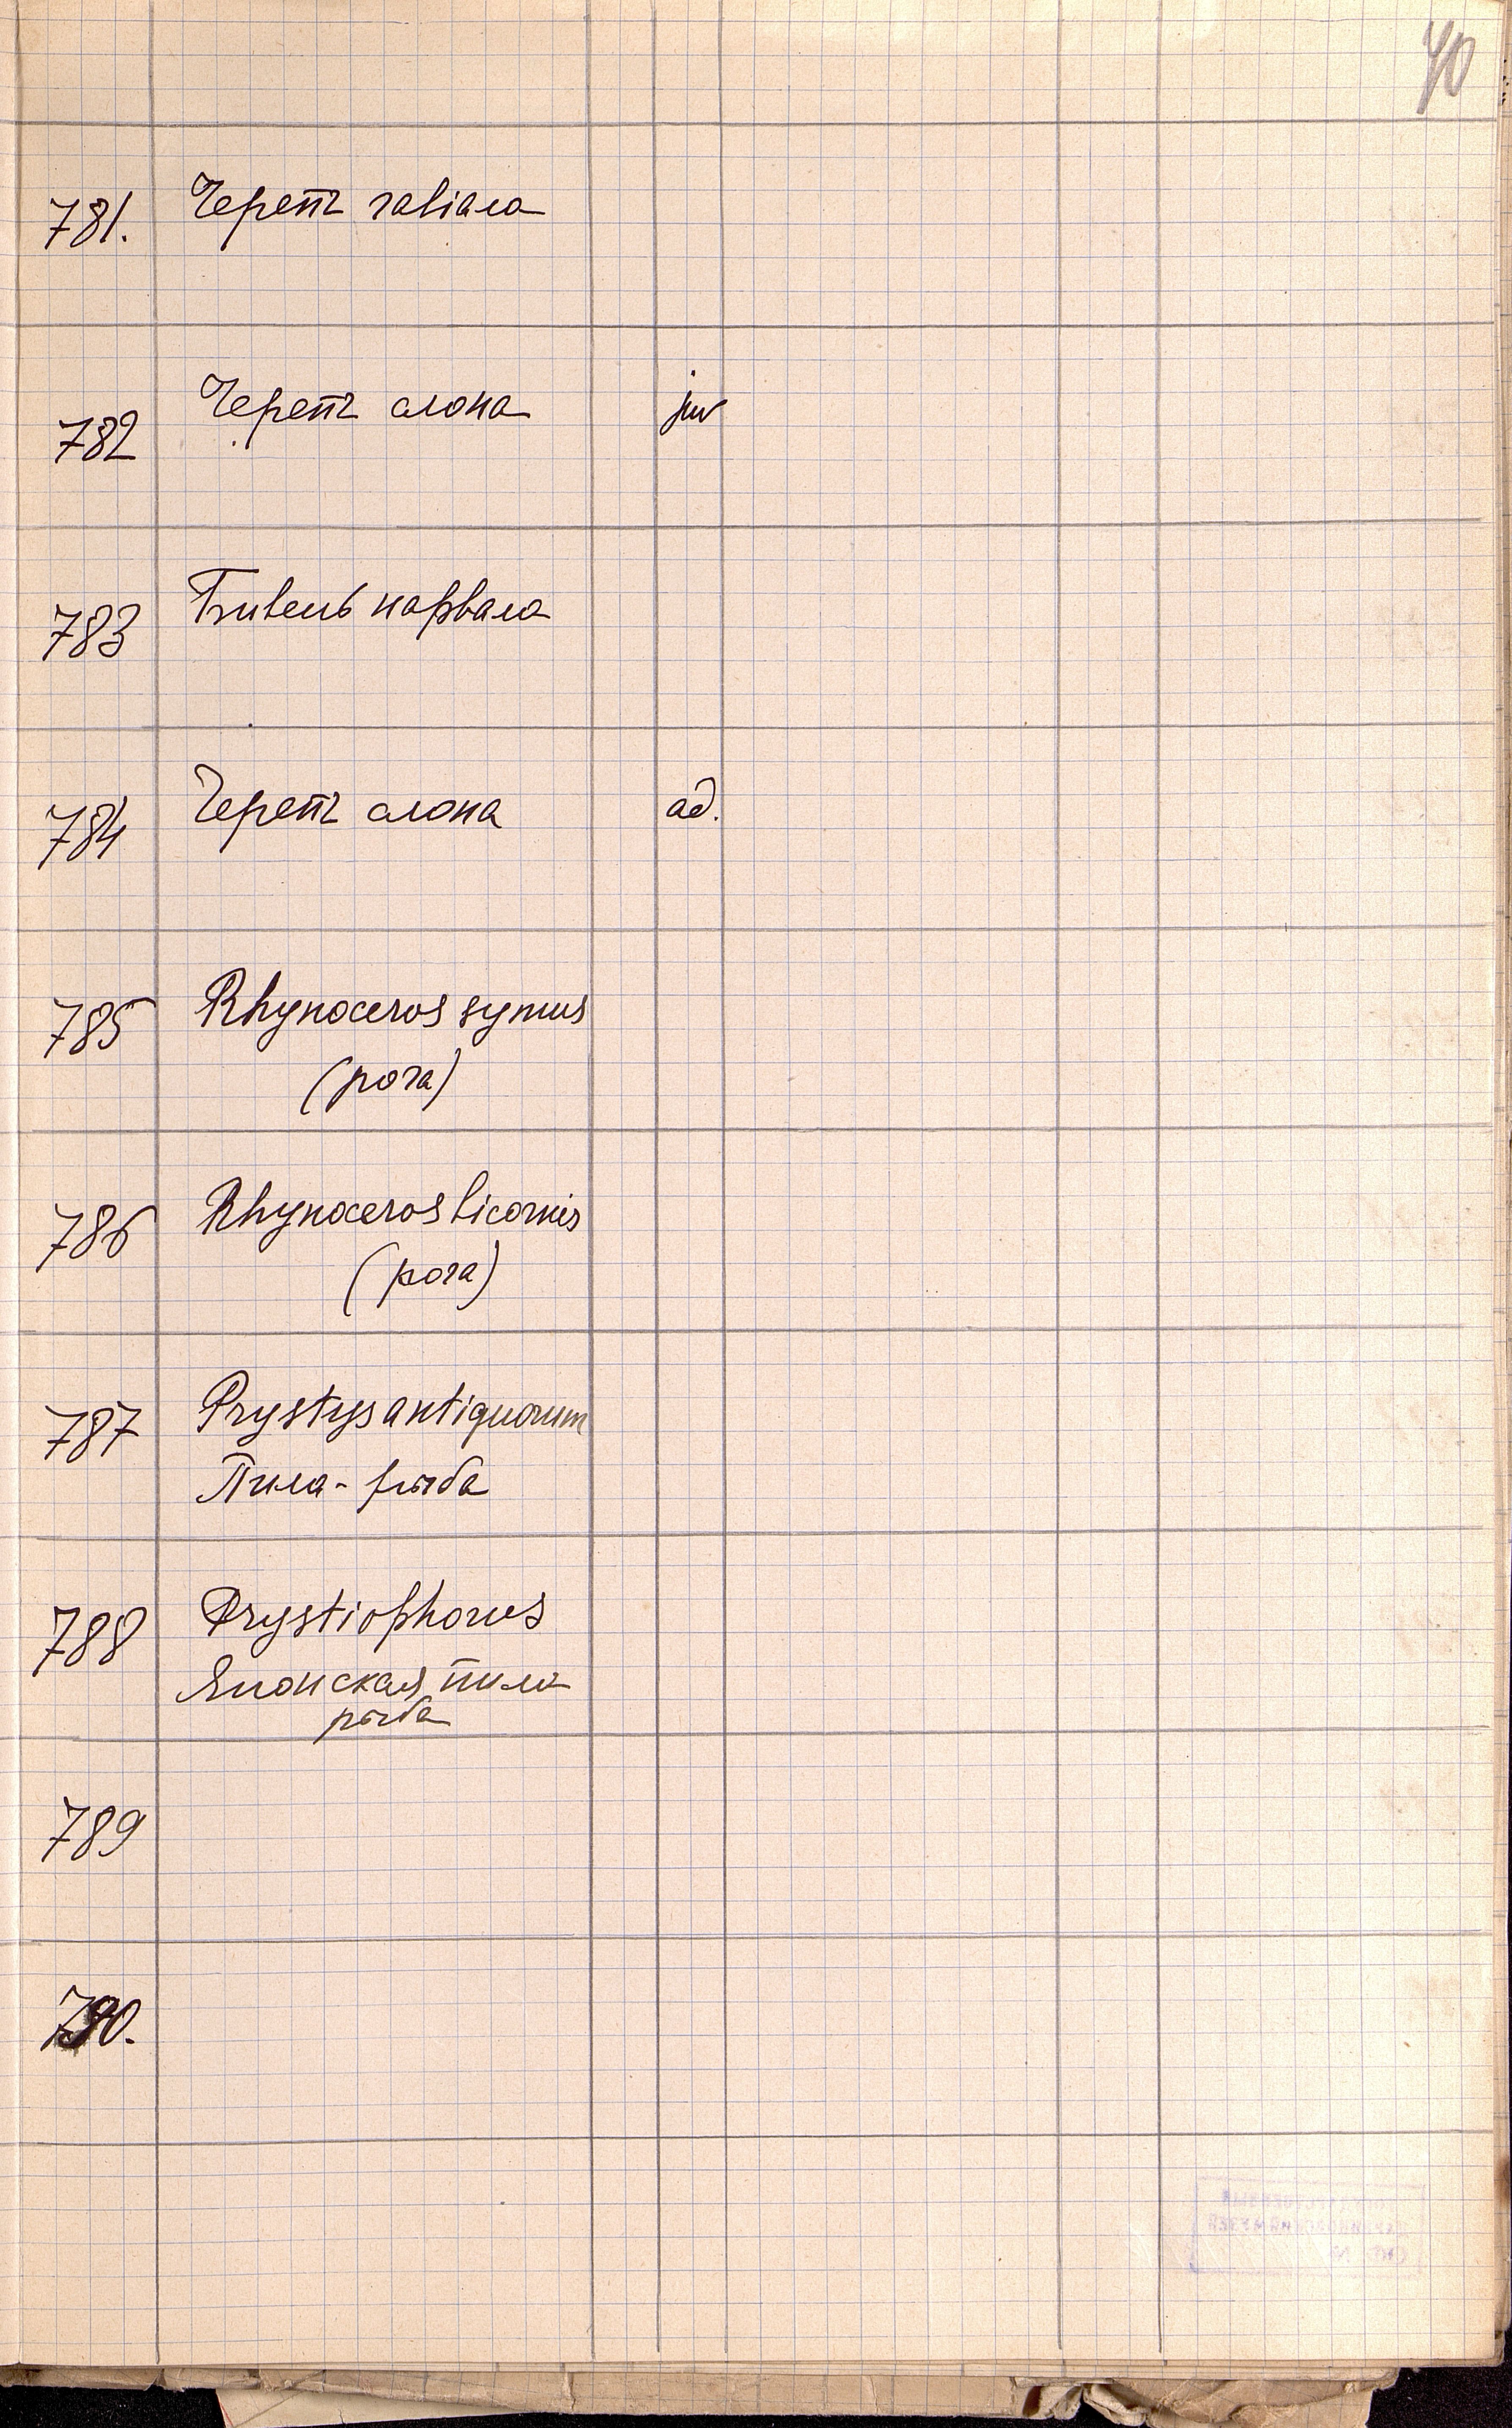 40
781. Черепъ гавіала
782 Черепъ слона juv
783 Бивень нарвала
784 Черепъ слона ad.
785 Rhynoceros symus
(рога)
786 Rhynoceros bicornis
(рога)
787 Prystys antiquorum
Пила-рыба
788 Prystiophorus
Японская пила
рыба
789
790.